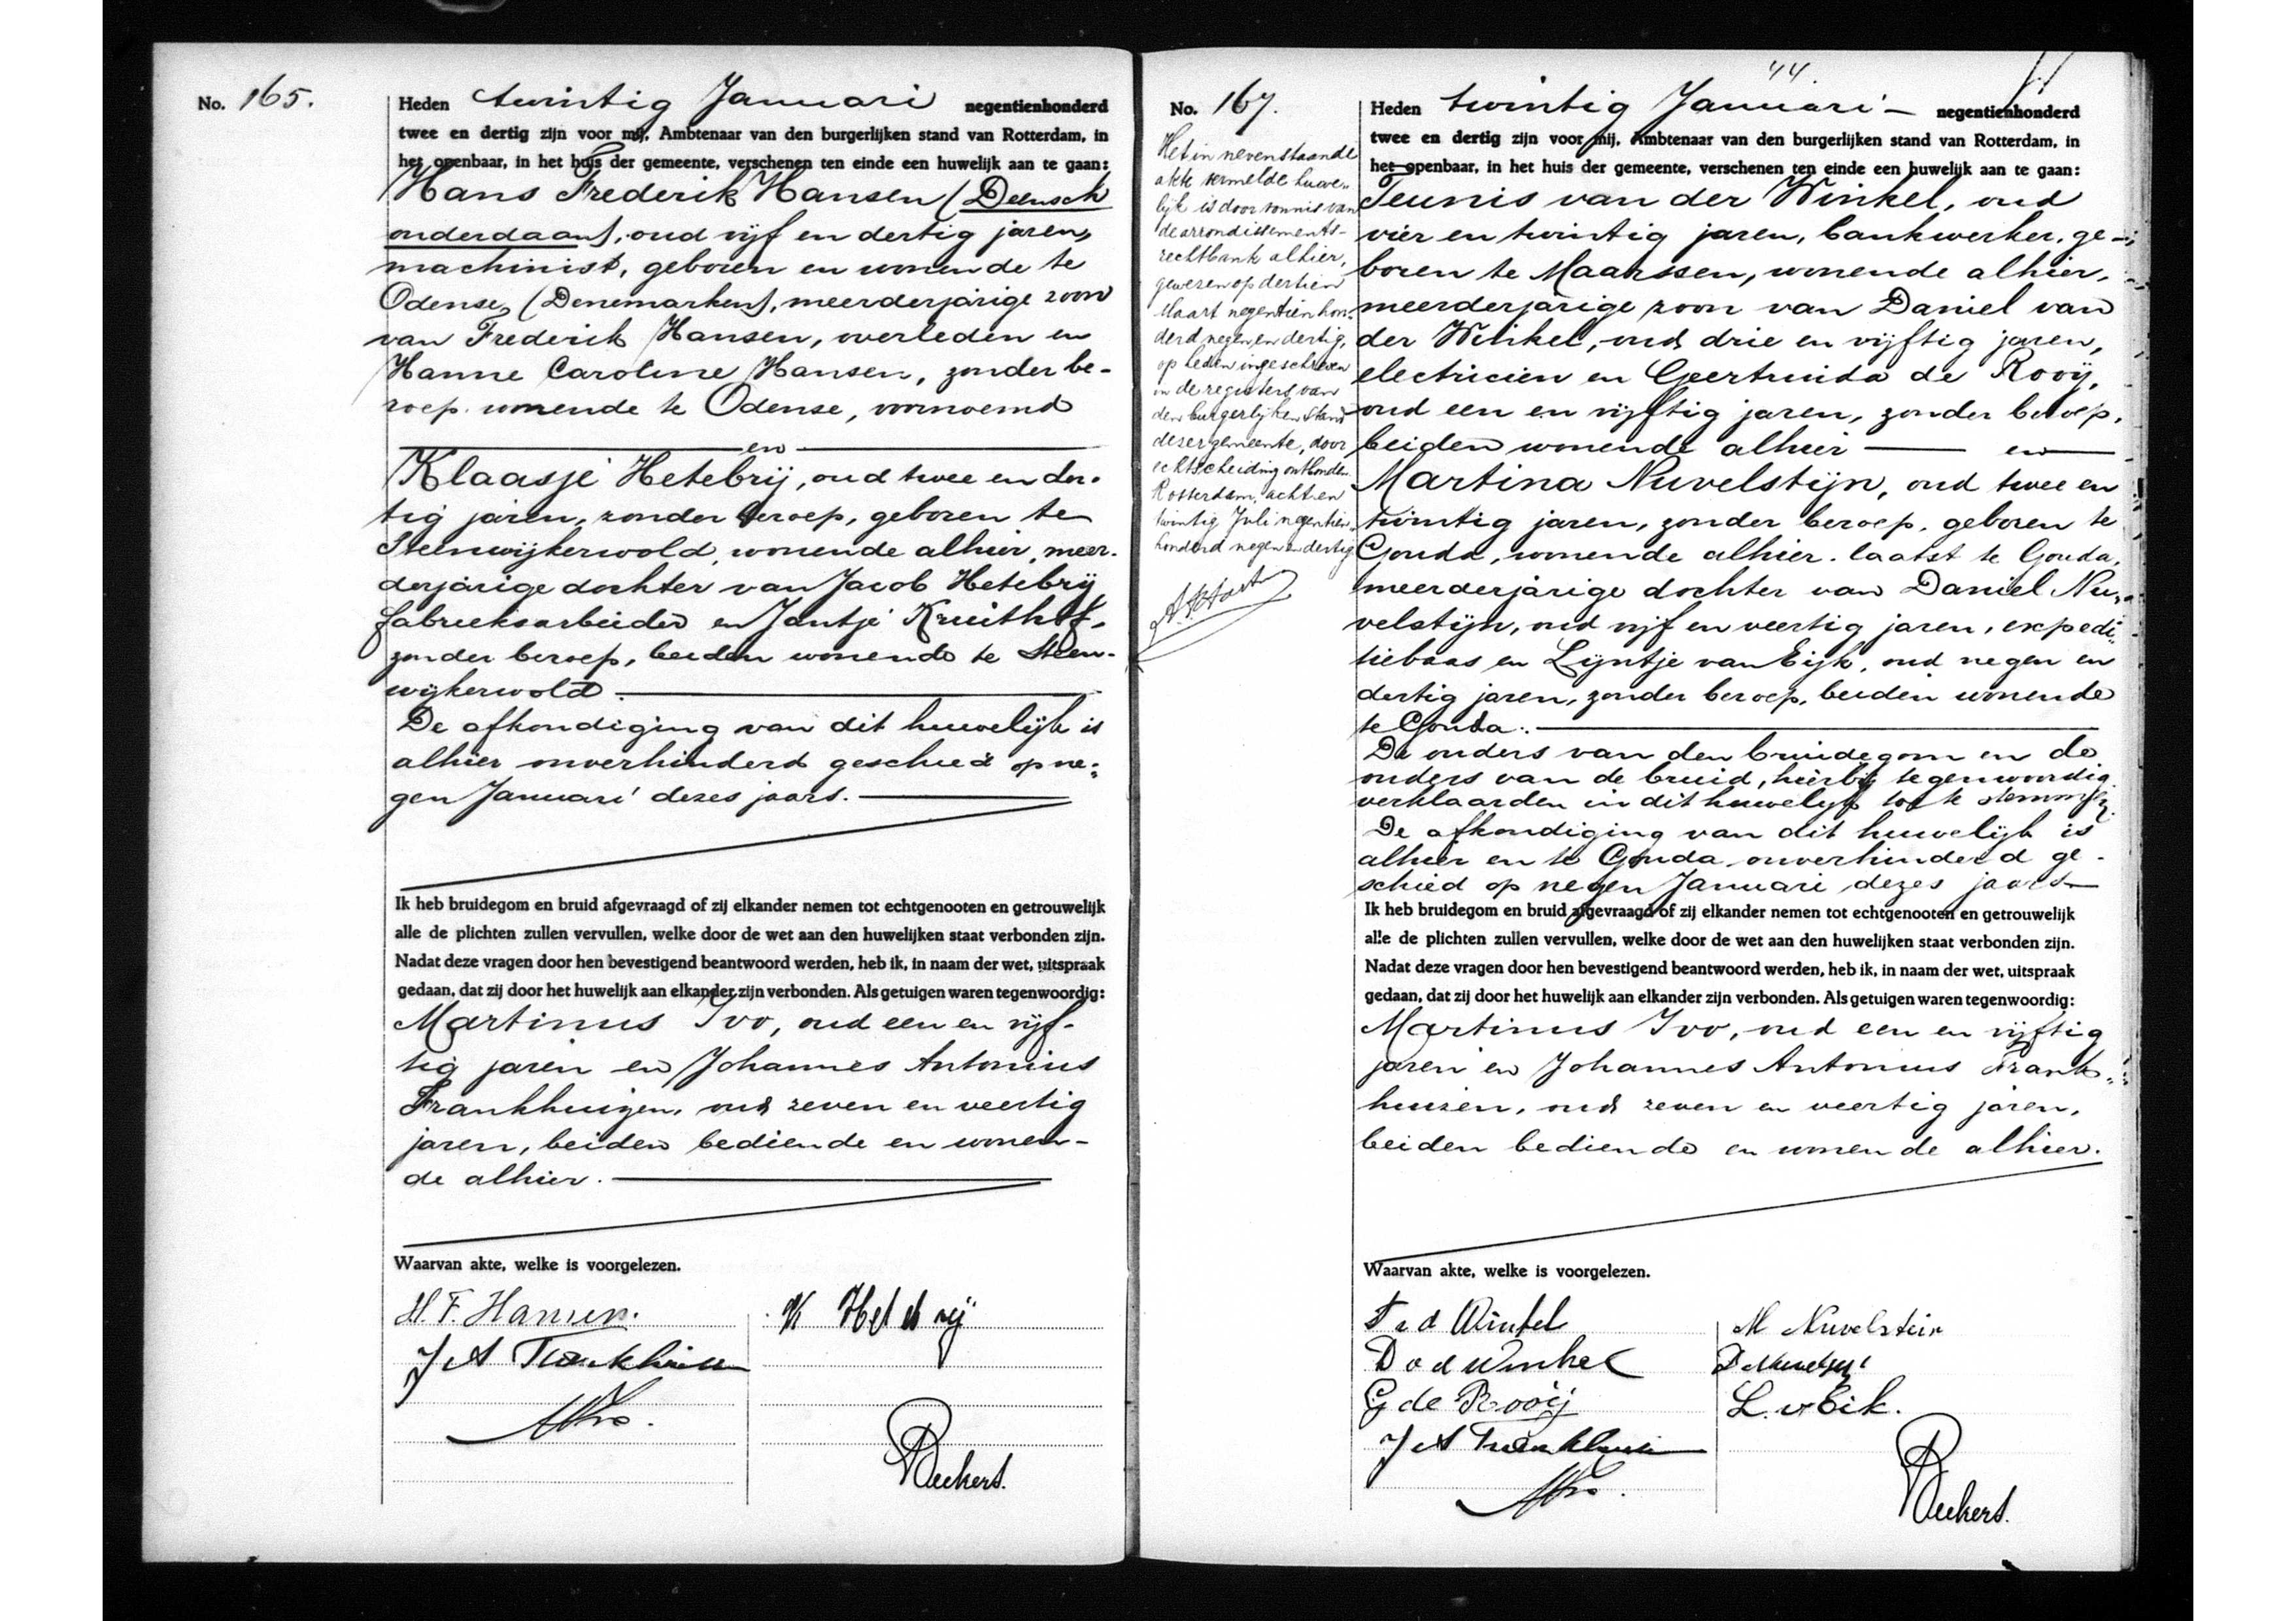 No. 165.
Heden twintig Januari negentienhonderd
twee en dertig zijn voor mij, Ambtenaar van den burgerlijken stand van Rotterdam, in
het openbaar, in het huis der gemeente, verschenen ten einde een huwelijk aan te gaan:
Hans Frederik Hansen (Deensch
onderdaan), oud vijf en dertig jaren,
machinist, geboren en wonende te
Odense, (Denemarken), meerderjarige zoon
van Frederik Hansen, overleden en
Hanne Caroline Hansen, zonder be-
roep wonende te Odense, voornoemd
en
Klaasje Hetebrij, oud twee en der-
tig jaren, zonder beroep, geboren te
Steenwijkerwold, wonende alhier, meer-
derjarige dochter van Jacob Hetebrij
fabrieksarbeider en Jantje Kruithof,
zonder beroep, beiden wonende te Steen-
wijkerwold.
De afkondiging van dit huwelijk is
alhier onverhinderd geschied op ne-
gen Januari dezes jaars.
Ik heb bruidegom en bruid afgevraagd of zij elkander nemen tot echtgenooten en getrouwelijk
alle de plichten zullen vervullen, welke door de wet aan den huwelijken staat verbonden zijn.
Nadat deze vragen door hen bevestigend beantwoord werden, heb ik, in naam der wet, uitspraak
gedaan, dat zij door het huwelijk aan elkander zijn verbonden. Als getuigen waren tegenwoordig:
Martinus Ivo, oud een en vijf-
tig jaren en Johannes Antonius
Frankhuizen, oud zeven en veertig
jaren, beiden bediende en wonen-
de alhier.
Waarvan akte, welke is voorgelezen.
H. F. Hansen.
K Hetebrij
J A Frankhuizen
MIvo.
Beekers.
44.
No. 167.
Het in nevenstaande
akte vermelde huwe-
lijk is door vonnis van
de arrondissements-
rechtbank alhier,
gewezen op dertien
Maart negentienhon-
derd negen en dertig,
op heden ingeschreven
in de registers van
den burgerlijken stand
dezer gemeente, door
echtscheiding ontbonden.
Rotterdam, acht en
twintig Juli negentien-
honderd negen en dertig
Heden twintig Januari negentienhonderd
twee en dertig zijn voor mij, Ambtenaar van den burgerlijken stand van Rotterdam, in
het openbaar, in het huis der gemeente, verschenen ten einde een huwelijk aan te gaan:
Teunis van der Winkel, oud
vier en twintig jaren, bankwerker, ge-
boren te Maarssen, wonende alhier,
meerderjarige zoon van Daniel van
der Winkel, oud drie en vijftig jaren,
electricien en Geertruida de Rooij,
oud een en vijftig jaren, zonder beroep,
beiden wonende alhier en
Martina Nuvelstijn, oud twee en
twintig jaren, zonder beroep, geboren te
Gouda, wonende alhier, laatst te Gouda,
meerderjarige dochter van Daniel Nu-
velstijn, oud vijf en veertig jaren, expedi-
tiebaas en Lijntje van Eijk, oud negen en
dertig jaren, zonder beroep, beiden wonende
te Gouda.
De ouders van den bruidegom en de
ouders van de bruid, hierbij tegenwoordig
verklaarden in dit huwelijk toe te stemmen.
De afkondiging van dit huwelijk is
alhier en te Gouda onverhinderd ge-
schied op negen Januari dezes jaars
Ik heb bruidegom en bruid afgevraagd of zij elkander nemen tot echtgenooten en getrouwelijk
alle de plichten zullen vervullen, welke door de wet aan den huwelijken staat verbonden zijn.
Nadat deze vragen door hen bevestigend beantwoord werden, heb ik, in naam der wet, uitspraak
gedaan, dat zij door het huwelijk aan elkander zijn verbonden. Als getuigen waren tegenwoordig:
Martinus Ivo, oud een en vijftig
jaren en Johannes Antonius Frank-
huizen, oud zeven en veertig jaren,
beiden bediende en wonende alhier.
Waarvan akte, welke is voorgelezen.
T v d Winkel
M Nuvelstein
D v d Winkel
D Nuvelstijn
G de Rooij
L. v Eik.
J A Frankhuizen
MIvo.
Beekers.